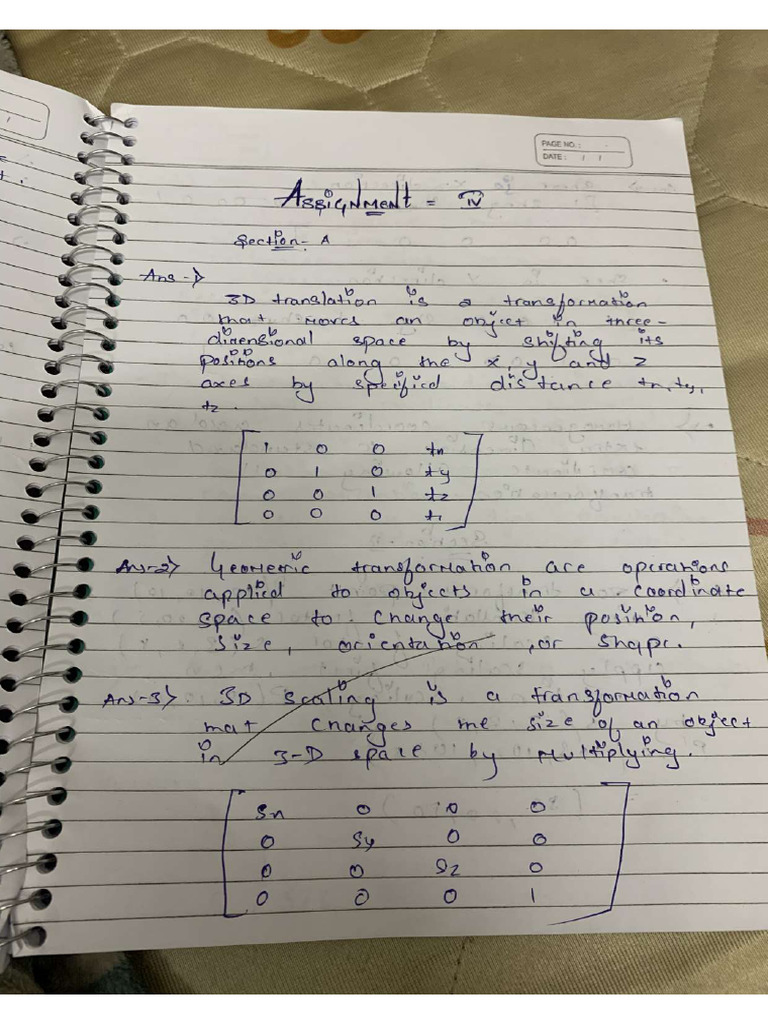 PAGE NO.:
DATE: / /
ASSIGNMENT = IV
Section - A
Ans-1)
3D translation is a transformation
that moves an object in three-
dimensional space by shifting its
positions along the x, y and z
axes by specified distance tx, ty,
tz.
1 0 0 tx
0 1 0 ty
0 0 1 tz
0 0 0 t1
Ans-2) Geometric transformation are operations
applied to objects in a coordinate
space to change their position,
size, orientation, or shape.
Ans-3) 3D scaling is a transformation
that changes the size of an object
in 3-D space by multiplying.
Sx 0 0 0
0 Sy 0 0
0 0 Sz 0
0 0 0 1